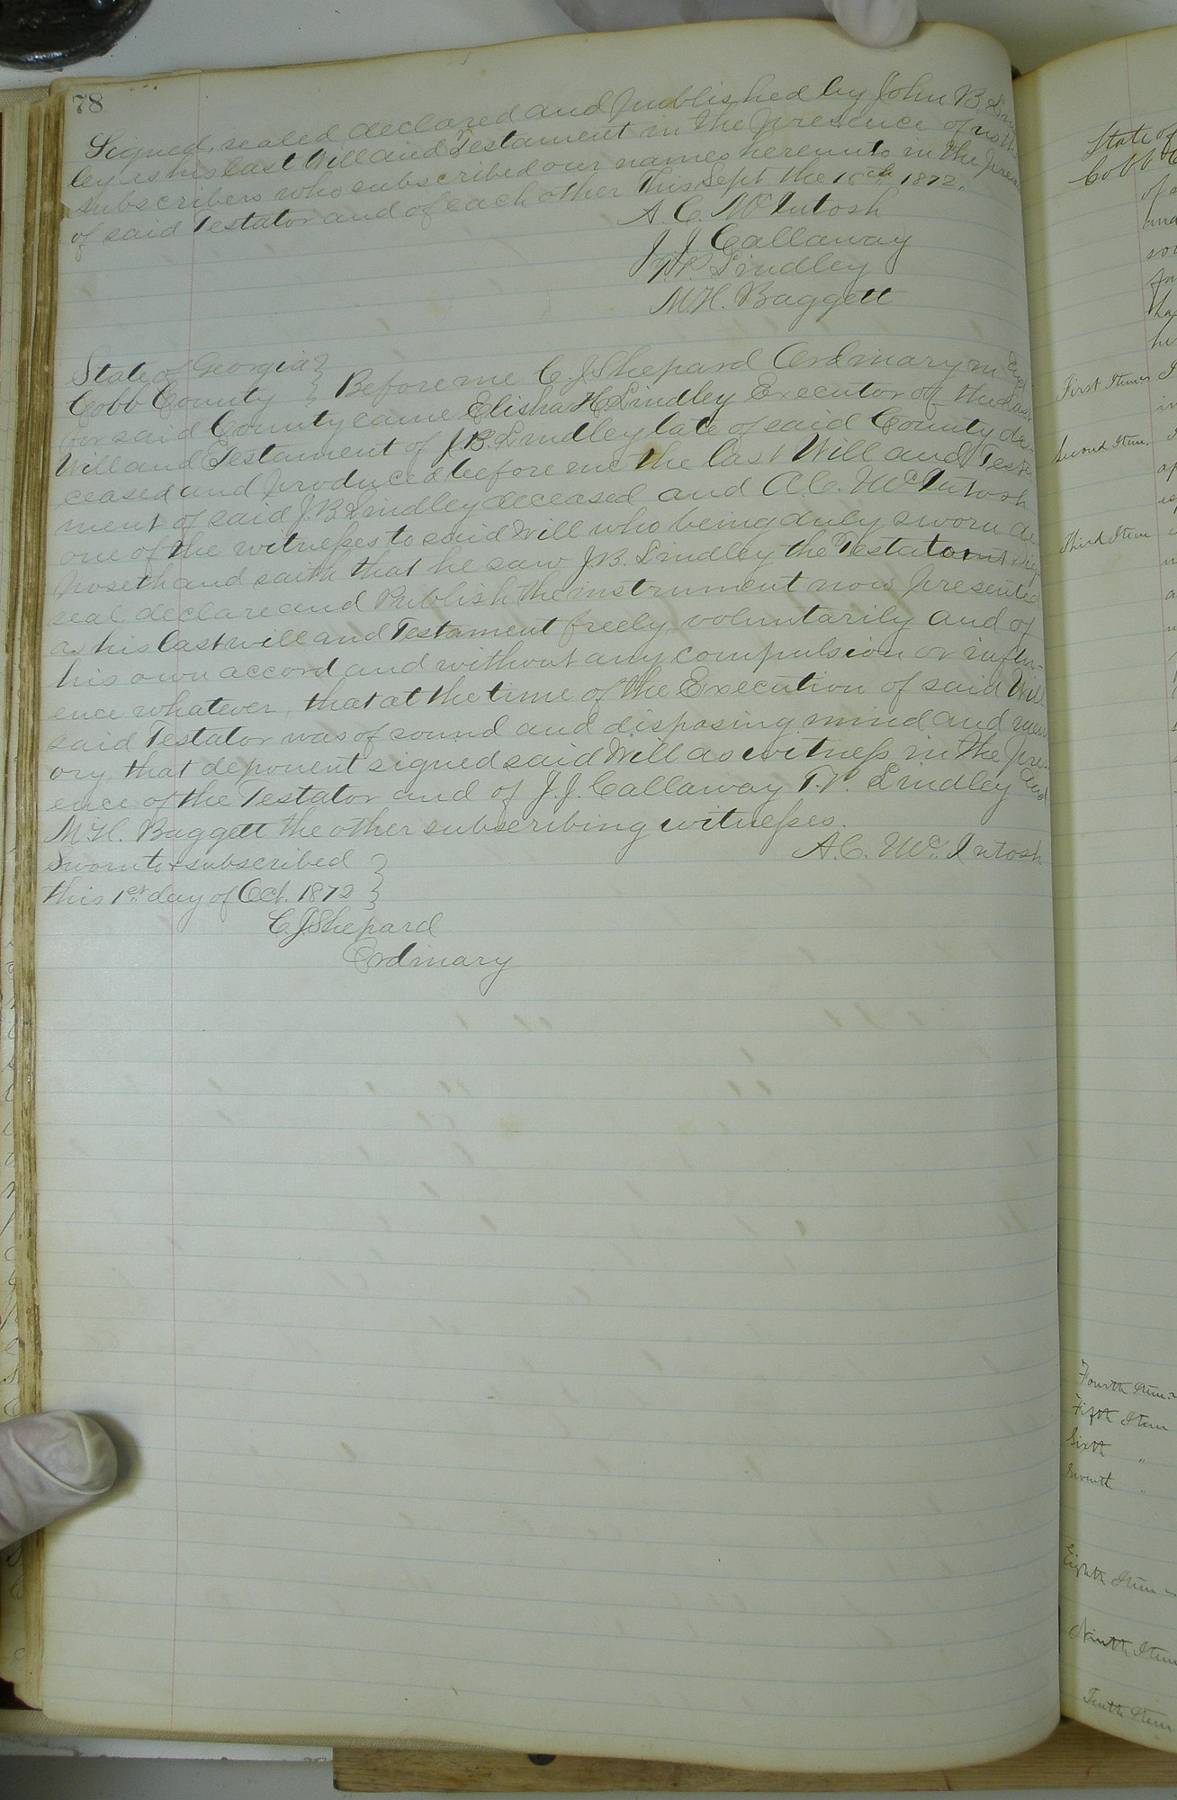 78
Signed, sealed, declared and published by John B Lind
ley as his last Will and Testament in the presence of us the
subscribers who subscribed our names hereunto in the pres
of said Testator and of each other This Sept the 16th 1872.
A. C. McIntosh
J. J. Callaway
T. P. Lindley
M. H. Baggett
State of Georgia }
Cobb County } Before me C. J. Shepard Ordinary in and
for said County came Elisha H Lindley Executor of the last
Will and Testament of J. B. Lindley late of said County de-
ceased and produced before me the last Will and Testa
ment of said J. B Lindley deceased and A. C. McIntosh
one of the witnesses to said Will who being duly sworn de
poseth and saith that he saw J. B. Lindley the Testator
seal declare and Publish the instrument now presented
as his last will and Testament freely voluntarily and of
his own accord and without any compulsion or influ-
ence whatever, that at the time of the Execution of said Will
said Testator was of sound and disposing mind and mem
ory, that deponent signed said Will as witness in the pre
ence of the Testator and of J. J. Callaway T. P. Lindley and
M. H. Baggett the other subscribing witnesses.
A. C. McIntosh
Sworn to & subscribed }
this 1st day of Oct. 1872 }
C. J. Shepard
Ordinary
State of
Cobb C
First Item
Second Item
Third Item
Fourth Item
Fifth Item
Sixth "
Seventh "
Eighth Item
Ninth Item
Tenth Item